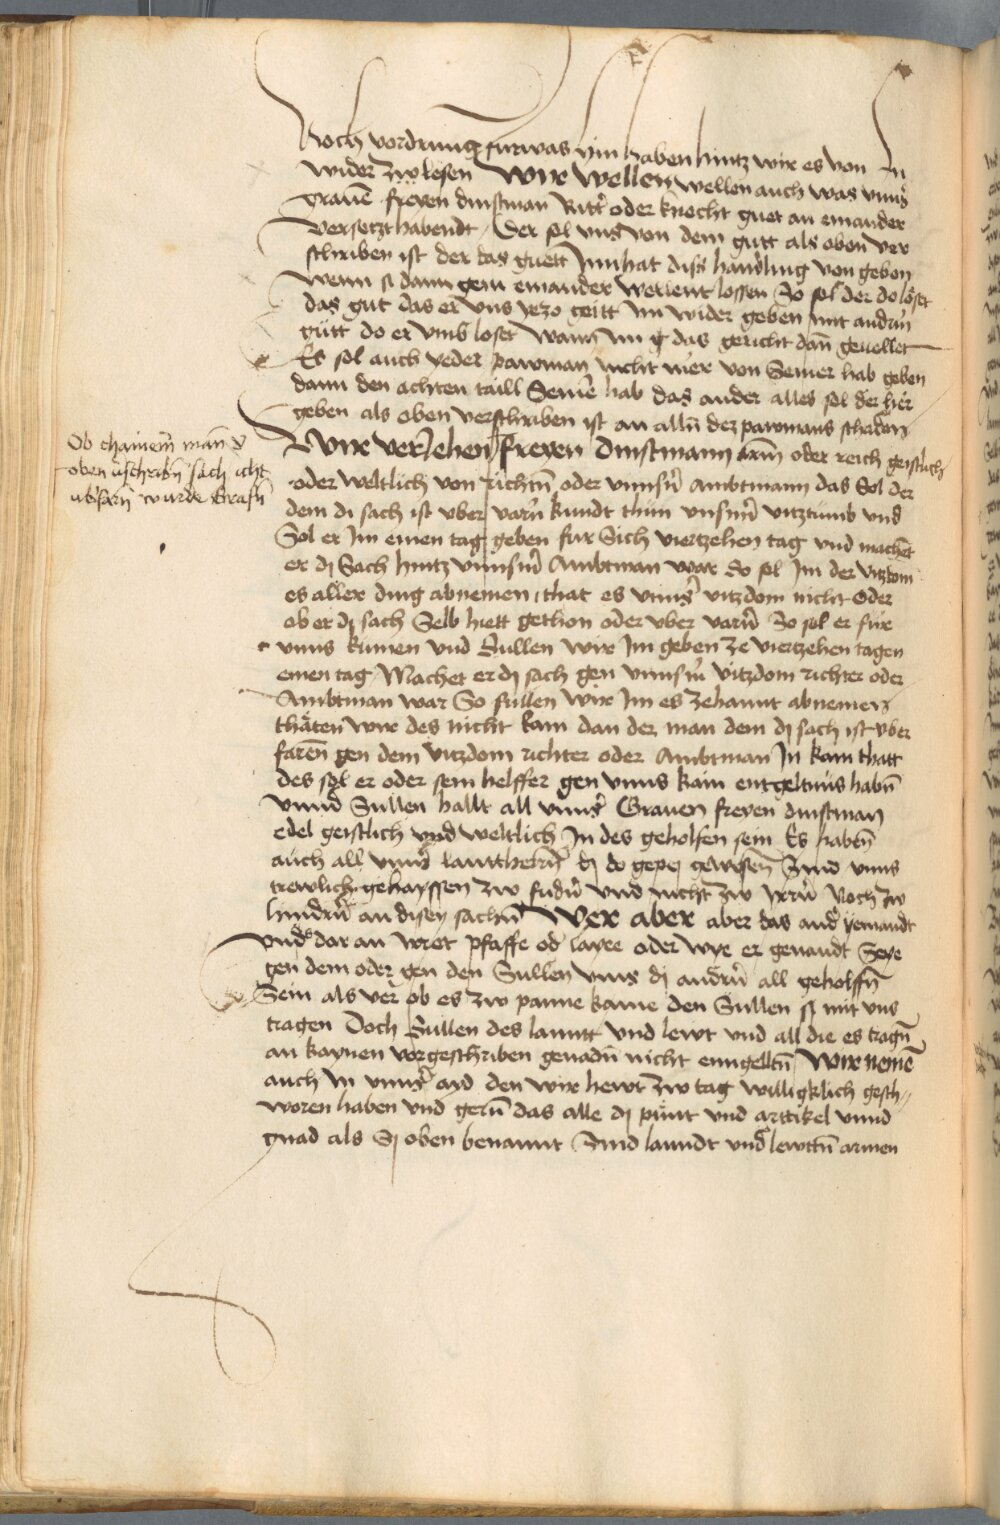 Noch vordrung furwas hin haben hintz wir es von In
wider zw lösen Wir wellen wellen auch was vnns̃
grauẽ freyen dinstman Ritt̃ oder knecht guet an einander
versetzt habendt / Der sol vns von dem gutt als oben ver
schriben ist der das guett Innhat diss handlung von geben
wenn si dann gern einander werient lossen So sol der do löset
das gut das er vns yezo geitt im wider geben mit andrñ
gutt do er vmb loset wann im das gericht dañ geuellet
Es sol auch yeder pawman nicht mer von Seiner hab geben
dann den achten taill Seinẽ hab das ander alles sol der her
geben als oben verschriben ist an allñ dez pawmans schadñ
Ob chainem̃ man d̃
oben ṽschribñ sach icht
vb̃farñ wurde
Wir verjehen freyen dinstmann arm̃ oder reich geistlich
oder weltlich von richtñ oder vnnsñ Ambtmann das Sol der
dem di sach ist vber varñ kundt thun vnsm̃ vitztumb vnd
Sol er Im einen tag geben fur Sich viertzehen tag vnd machet
er dj Sach hintz vnnsm̃ Ambtman war do sol Im der vitzdom
es aller ding abnemen / that es vnns̃ vitzdom nicht Oder
ob er dj sach Selb hiett gethon oder vber varñ So sol er für
vnns kumen vnd Sullen wir Im geben ze viertzehen tagen
einen tag / Machet er dj sach gen vnnsm̃ vitzdom richter oder
Ambtman war So sullen wir Im es zehannt abnemen
thäten wir des nicht kam dan der man dem dj sach ist vber
farẽn gen dem vitzdom richter oder Ambtman In kain thatt
des sol er oder sein helffer gen vnns kain entgeltnüs habñ
vnnd Sullen hallt all vnns̃ Grauen freyen dinstman
edel geistlich vnd weltlich In des geholfen sein Es habñ
auch all vnns̃ lantther̃n dj do gegen gewesen Sind vnns
trewlich gehayssen zw fudrñ vnd nicht zw Irrñ Noch zw
hindrñ an disen sachñ Wer aber aber das and̃ yemandt
vnd̃ dar an wret pfaffe od̃ laye oder wye er genandt Seye
gen dem oder gen den Sullen vnns dj andrñ all geholffñ
Sein als ver ob es zw panne käme den Sullen si mit vns
tragen Doch Sullen des lanntt vnd lewt vnd all die es tragñ
an kaynen vorgeschriben genadñ nicht enngelltñ Wir nemẽ
auch in vnns̃ ayd den wir hewt zw tag willigklich gesch=
woren haben vnd gerñ das alle dj punt vnd arttikel vnnd
gnad als Sj oben benannt Sind lanndt vnd lewttñ armen